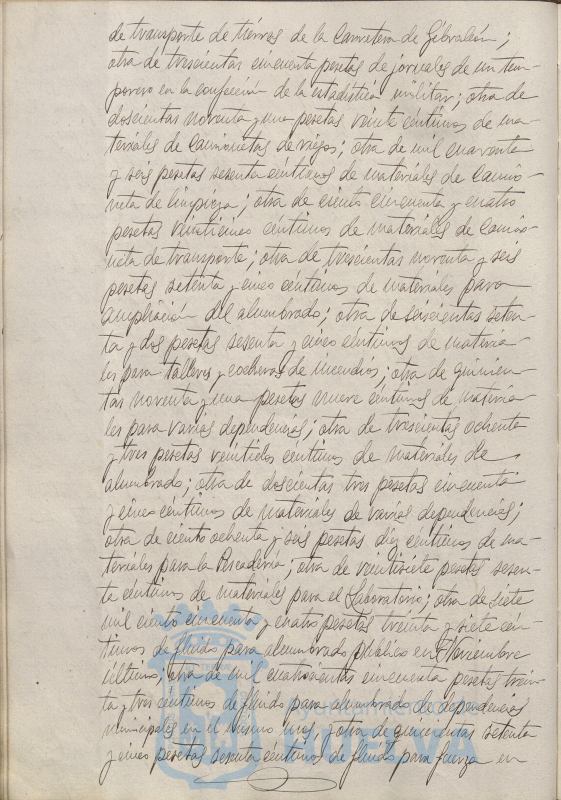 de transporte de tierras de la Carretera de Gibraleón;
otra de trescientas cincuenta pesetas de jornales de un tem-
porero en la confección de la estadística militar; otra de
doscientas noventa y una pesetas veinte céntimos de ma-
teriales de camionetas de riegos; otra de mil cuarenta
y seis pesetas sesenta céntimos de materiales de camio-
neta de limpieza; otra de ciento cincuenta y cuatro
pesetas veinticinco céntimos de materiales de camio-
neta de transporte; otra de trescientas noventa y seis
pesetas setenta y cinco céntimos de materiales para
ampliación del alumbrado; otra de seiscientas seten-
ta y dos pesetas sesenta y cinco céntimos de materia-
les para talleres y cocheras de incendios; otra de quinien-
tas noventa y una pesetas nueve céntimos de materia-
les para varias dependencias; otra de trescientas ochenta
y tres pesetas veintidos céntimos de materiales de
alumbrado; otra de doscientas tres pesetas cincuenta
y cinco céntimos de materiales de varias dependencias;
otra de ciento ochenta y seis pesetas diez céntimos de ma-
teriales para la Pescadería; otra de veintisiete pesetas sesen-
ta céntimos de materiales para el Laboratorio; otra de siete
mil ciento cincuenta y cuatro pesetas treinta y siete cén-
timos de fluido para alumbrado público en Noviembre
último; otra de mil cuatrocientas cincuenta pesetas trein-
ta y tres céntimos de fluido para alumbrado de dependencias
municipales en el mismo mes, y otra de quinientas setenta
y cinco pesetas sesenta céntimos de fluido para fuerza en
Ayuntamiento de
HUELVA